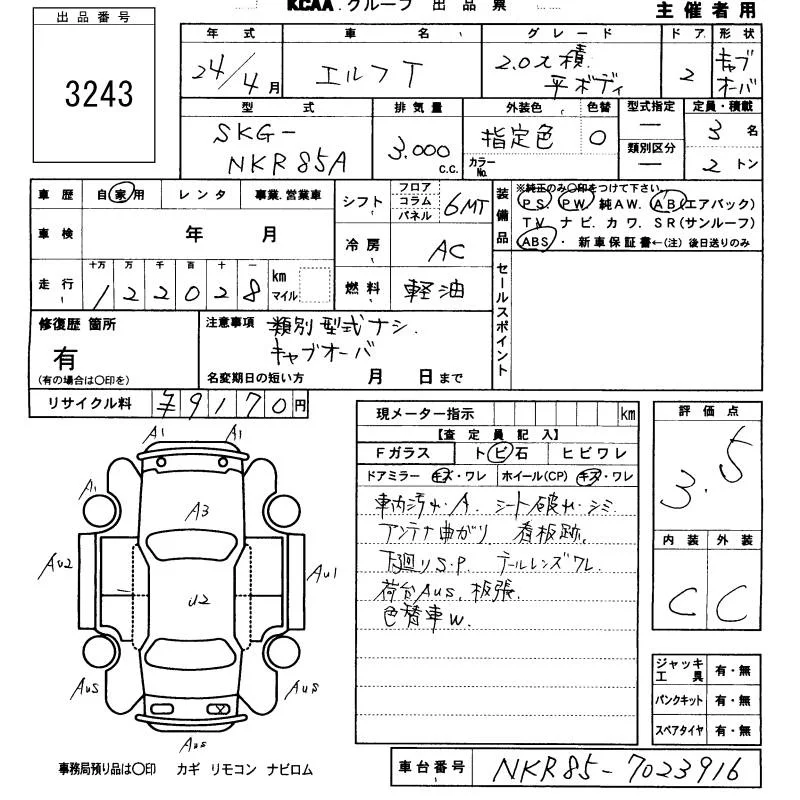 KCAA.グループ 出品票
主催者用
出品番号
3243
年式 車名 グレード ドア 形状
24/4月 エルフT 2.0t積 平ボディ 2 キャブオーバ
型式 排気量 外装色 色替 型式指定 定員・積載
SKG-NKR85A 3.000 c.c. 指定色 カラーNo. 0 ー 類別区分 ー 3名 2トン
車歴 自家用 レンタ 事業.営業車
車検 年 月
走行 十万 万 千 百 十 一 km マイル
1 2 2 0 2 8
シフト フロア コラム パネル 6MT
冷房 AC
燃料 軽油
装備品
※純正のみ〇印をつけて下さい。
PS PW 純AW. AB(エアバック)
TV ナビ.カワ.SR(サンルーフ)
ABS・新車保証書←(注)後日送りのみ
セールスポイント
修復歴 箇所
有
(有の場合は〇印を)
注意事項 類別型式ナシ.
キャブオーバ
名変期日の短い方 月 日まで
リサイクル料 ¥9170円
現メーター指示 km
【査定員記入】
Fガラス ト ビ 石 ヒビワレ
ドアミラー キズ・ワレ ホイール(CP) キズ・ワレ
車内汚れ・A. シート破れ・シミ
アンテナ曲がり 看板跡.
下廻りS.P. テールレンズワレ.
荷台AuS. 板張.
色替車W.
評価点
3.5
内装 外装
C C
A1 A1
A1
A3
Au2 Au1
U2
AuS AuS
AuS
ジャッキ工具 有・無
パンクキット 有・無
スペアタイヤ 有・無
事務局預り品は〇印 カギ リモコン ナビロム
車台番号 NKR85-7023916